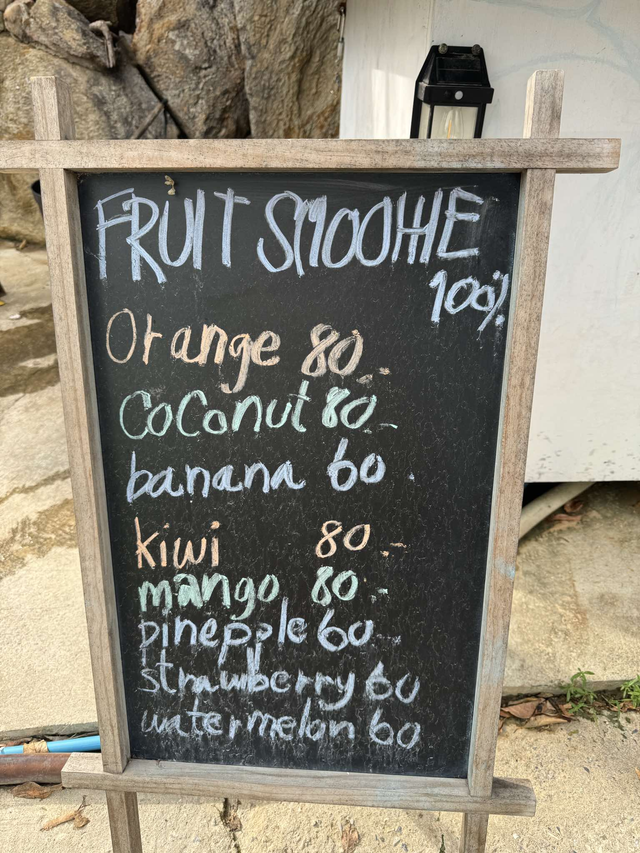 FRUIT SMOOTHIE
100%
Orange 80.-
Coconut 80.-
banana 60.
kiwi 80.-
mango 80.-
pinepple 60.-
strawberry 60
watermelon 60